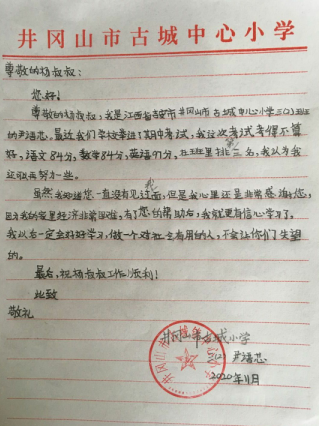 井冈山市古城中心小学
尊敬的杨叔叔：
您好！
尊敬的杨叔叔，我是江西省吉安市井冈山市古城中心小学三(2)班班
的尹语芯。最近我们学校举行了期中考试，我这次考试考得不算
好，语文84分，数学84分，英语97分，在班里排第三名，我以为我
还能再努力一些。
虽然我和您一直没有见过面，但是我心里还是非常感谢您，
因为我的家里经济非常困难，有了您的帮助后，我就更有信心学习了。
我以后一定会好好学习，做一个对社会有用的人，不会让你们失望
的。
最后，祝杨叔叔工作顺利！
此致
敬礼
井冈山市古城小学
尹语芯
2020年11月